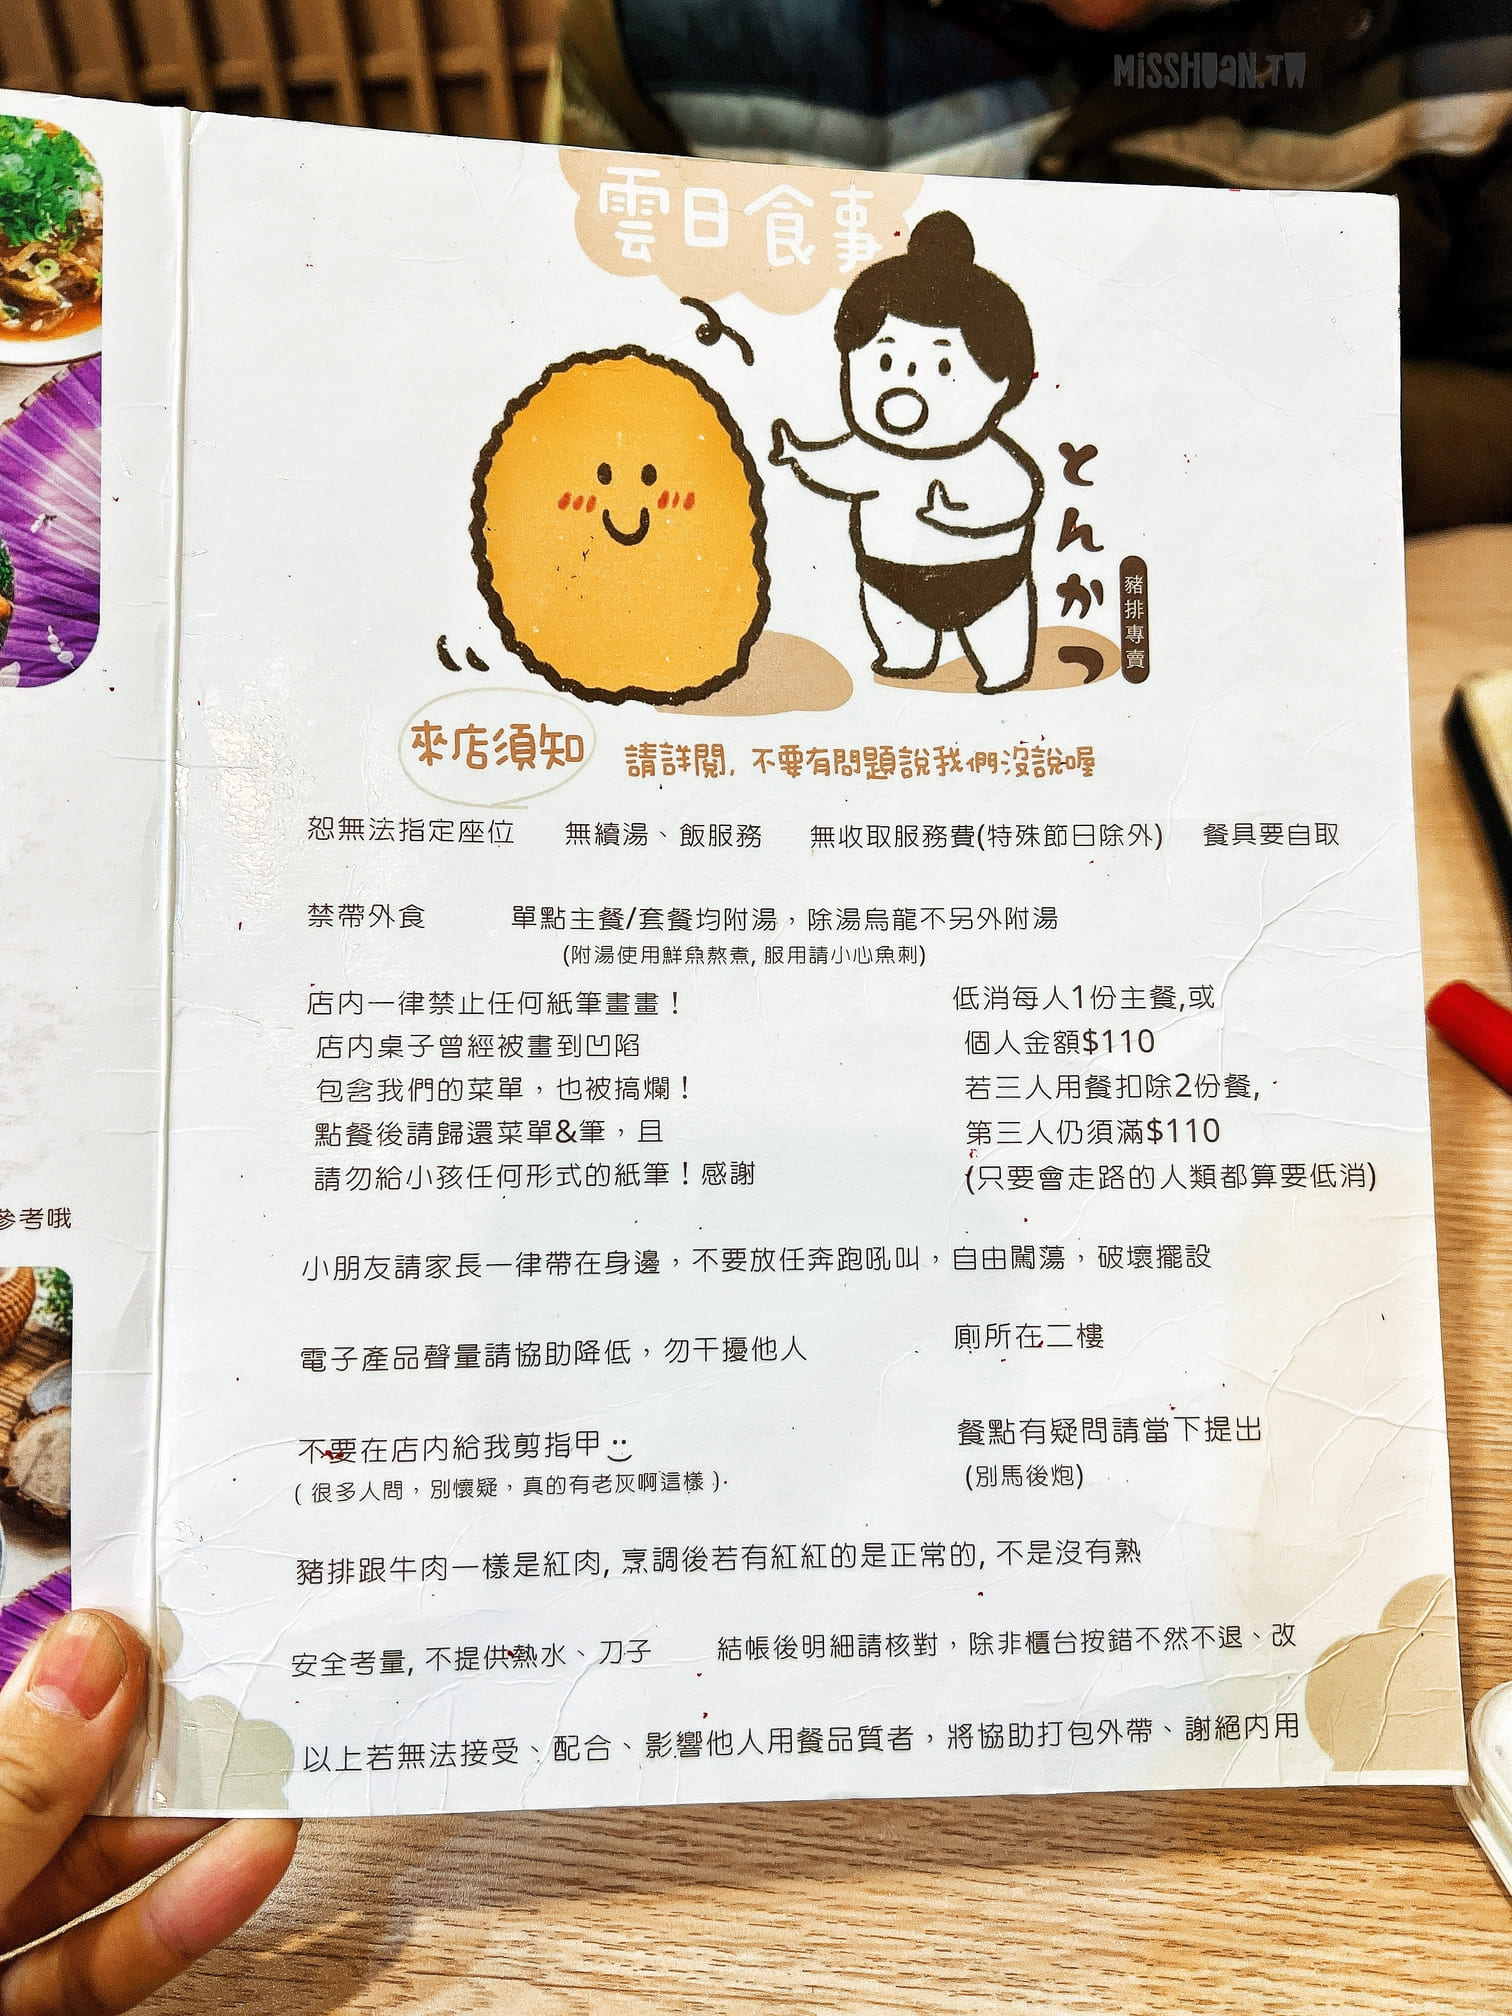 MISSHUAN.TW
雲日食事
とんかつ
豬排專賣
來店須知
請詳閱, 不要有問題說我們沒說喔
恕無法指定座位 無續湯、飯服務 無收取服務費(特殊節日除外) 餐具要自取
禁帶外食 單點主餐/套餐均附湯，除湯烏龍不另外附湯
(附湯使用鮮魚熬煮, 服用請小心魚刺)
店內一律禁止任何紙筆畫畫！
店內桌子曾經被畫到凹陷
包含我們的菜單，也被搞爛！
點餐後請歸還菜單&筆，且
請勿給小孩任何形式的紙筆！感謝
低消每人1份主餐,或
個人金額$110
若三人用餐扣除2份餐,
第三人仍須滿$110
(只要會走路的人類都算要低消)
參考哦
小朋友請家長一律帶在身邊，不要放任奔跑吼叫，自由闖蕩，破壞擺設
電子產品聲量請協助降低，勿干擾他人
廁所在二樓
不要在店內給我剪指甲
( 很多人問，別懷疑，真的有老灰啊這樣 ).
餐點有疑問請當下提出
(別馬後炮)
豬排跟牛肉一樣是紅肉, 烹調後若有紅紅的是正常的, 不是沒有熟
安全考量, 不提供熱水、刀子 結帳後明細請核對，除非櫃台按錯不然不退、改
以上若無法接受、配合、影響他人用餐品質者，將協助打包外帶、謝絕內用